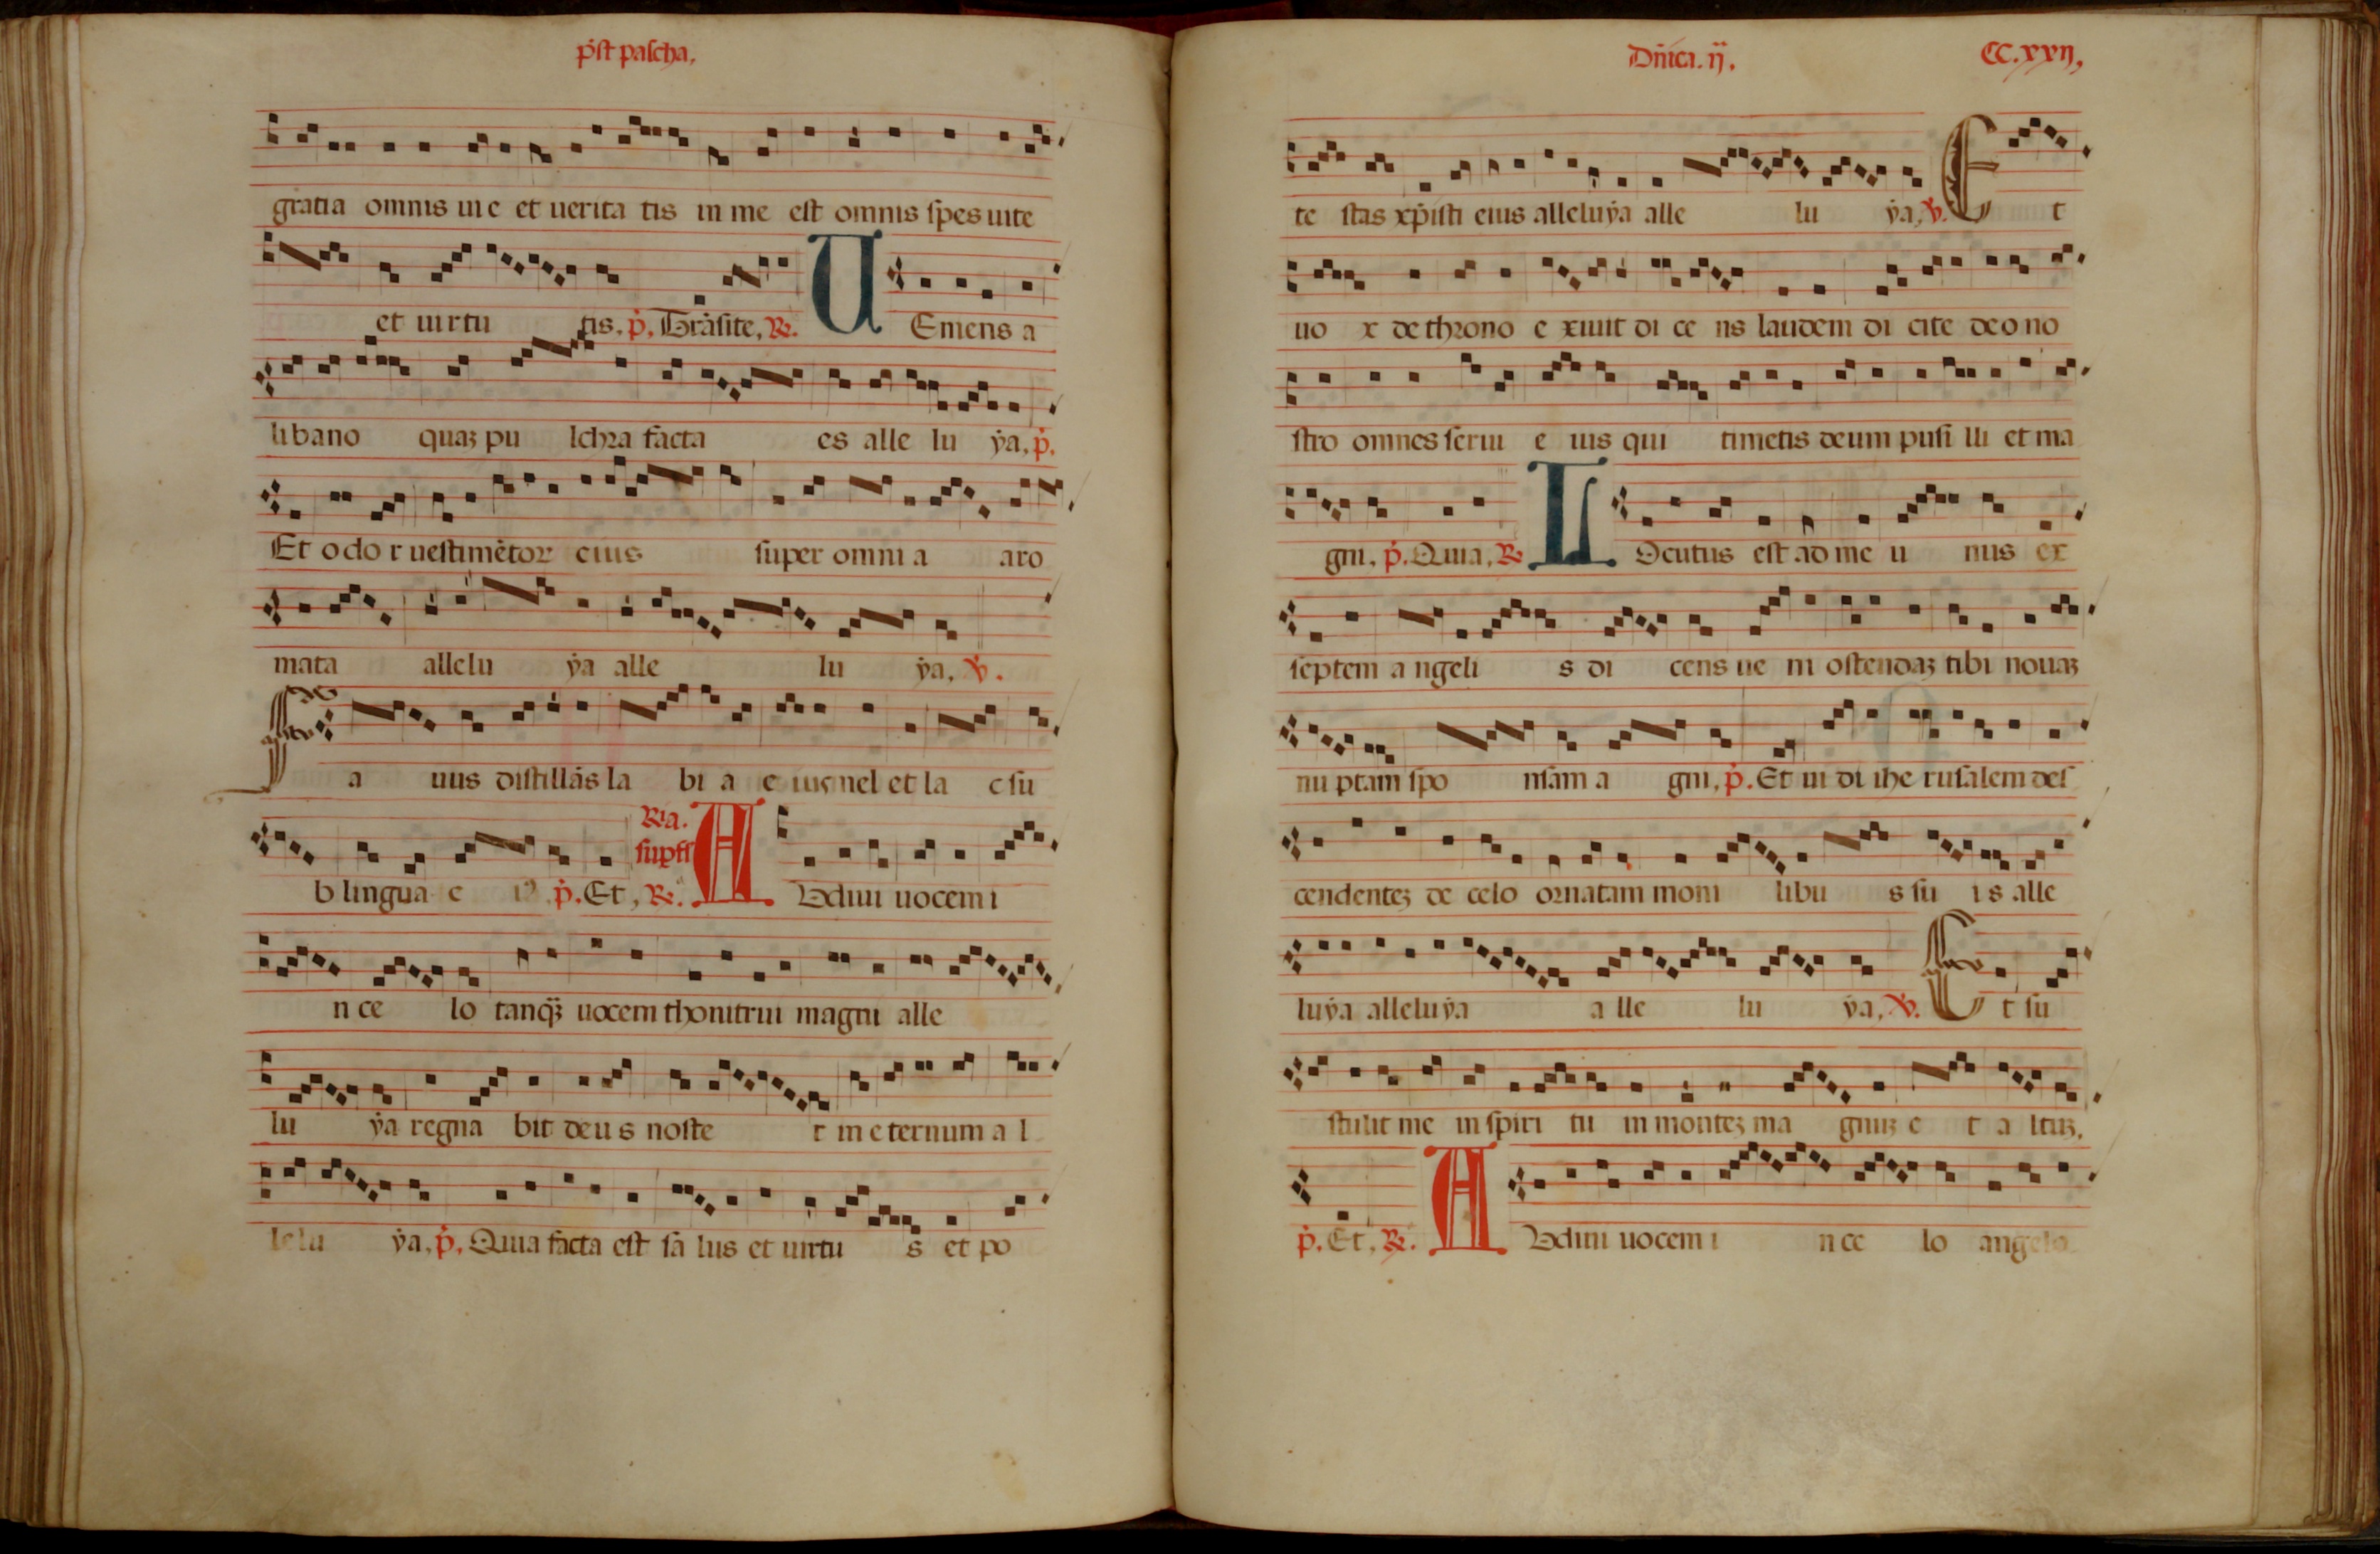 p̄st pascha.
gratia omnis uie et uerita tis in me est omnis spes uite
et uirtu tis, p̄. Trāsite, R. U Eniens a
libano quaꝫ pu lchra facta es alle lu ẏa, p̄.
Et odo r uestimētor eius super omni a aro
mata allelu ẏa alle lu ẏa, v.
F a uus distillās la bi a e ius mel et la c su
Ria.
b lingua e p̄. Et, R. A Udiui uocem i
n ce lo tanqꝫ uocem thonitrui magni alle
lu ẏa regna bit deu s noste r in e ternum a l
lelu ẏa, p̄. Quia facta est sa lus et uirtu s et po
Dn̄ica. ij. CC. xxij,
te stas xp̄isti eius alleluẏa alle lu ẏa, v. E t
uo x de throno e xiuit di ce ns laudem di cite deo no
stro omnes serui e ius qui timetis deum pusi lli et ma
gni, p̄. Quia, R. L Ocutus est ad me u nus ex
septem a ngeli s di cens ue ni ostendaꝫ tibi nouaꝫ
nu ptam spo nsam a gni, p̄. Et ui di ihe rusalem des
cendenteꝫ de celo ornatam moni libu s su i s alle
luẏa alleluẏa a lle lu ẏa, v. E t su
stulit me in spiri tu in monteꝫ ma gnuꝫ e t a ltuꝫ.
p̄. Et, R. A Udiui uocem i n ce lo angelo